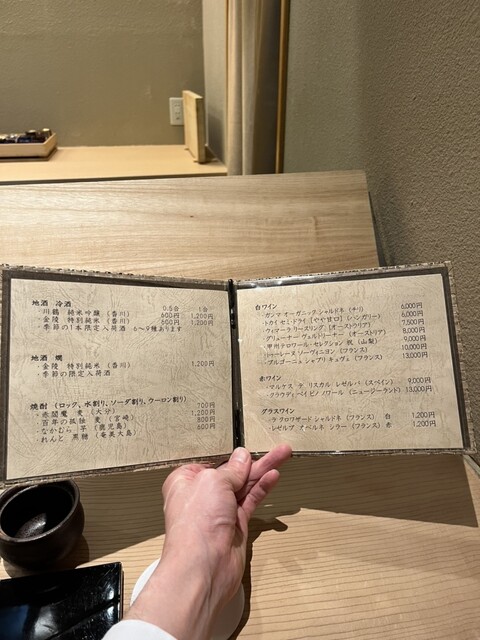 地酒 冷酒
0.5合 1合
・川鶴 純米吟醸 (香川) 600円 1,200円
・金陵 特別純米 (香川) 650円 1,200円
・季節の1本限定入荷酒 6〜9種あります
地酒 燗
・金陵 特別純米 (香川) 1,200円
・季節の限定入荷酒
焼酎 (ロック、水割り、ソーダ割り、ウーロン割り)
・赤閻魔 麦 (大分) 700円
・百年の孤独 麦 (宮崎) 1,200円
・なかむら 芋 (鹿児島) 800円
・れんと 黒糖 (奄美大島) 600円
白ワイン
・ガンマ オーガニック シャルドネ (チリ) 6,000円
・トカイ セミ・ドライ [やや甘口] (ハンガリー) 6,000円
・ヴィマーラ リースリング (オーストラリア) 7,500円
・グリューナー ヴェルトリーナー (オーストリア) 8,000円
・甲州テロワール・セレクション 祝 (山梨) 9,000円
・トゥーレーヌ ソーヴィニヨン (フランス) 10,000円
・ブルゴーニュ シャブリ キュヴェ (フランス) 13,000円
赤ワイン
・マルケス デ リスカル レゼルバ (スペイン) 9,000円
・クラウディ ベイ ピノ ノワール (ニュージーランド) 13,000円
グラスワイン
・ラ クロワザード シャルドネ (フランス) 白 1,200円
・レゼルブ オベルネ シラー (フランス) 赤 1,200円